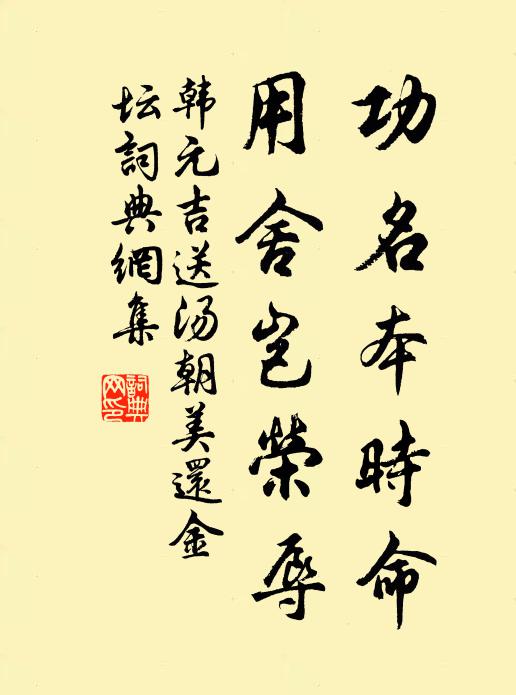 功名本時命
用舍豈榮辱
韩元吉送汤朝美還金
坛詞典網集
詞典
网印